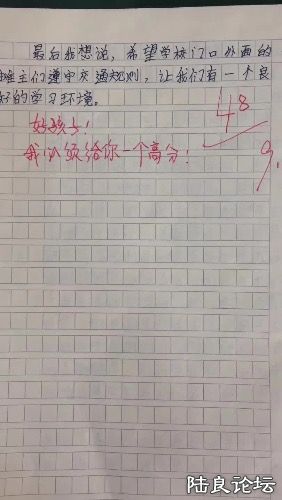 最后我想说，希望学校门口外面的
主们遵守交通规则，让我们有一个良
好的学习环境。
好孩子！
我必须给你一个高分！
48
9.
陆良论坛